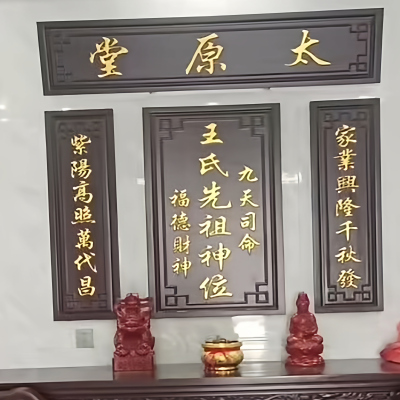 太原堂
家業興隆千秋發
九天司命
王氏先祖神位
福德財神
紫陽高照萬代昌